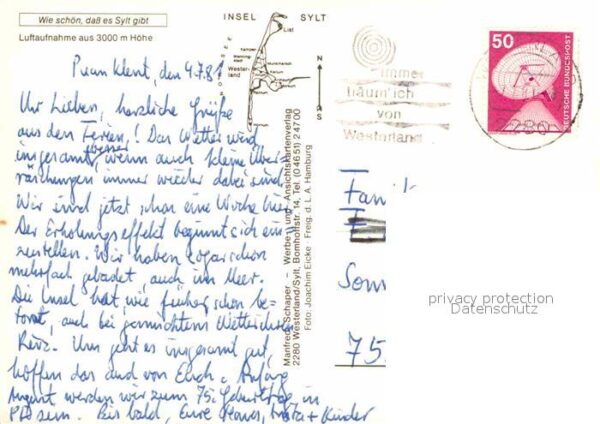 Wie schön, daß es Sylt gibt
Luftaufnahme aus 3000 m Höhe
INSEL SYLT
List
Kampen
Wenning-
stedt
Wester-
land
Munkmarsch
Keitum
N
S
Manfred Schaper – Werbe- und Ansichtskartenverlag
2280 Westerland/Sylt, Bomhoffstr. 14, Tel. (04651) 24700
Foto: Joachim Eicke Freig. d. L. A. Hamburg
immer
träum' ich
von
Westerland
50
DEUTSCHE BUNDESPOST
2280
den 4.7.81
Ihr Lieben, herzliche Grüße
aus den Ferien! Das Wetter wird
insgesamt besser, wenn auch kleine Über-
raschungen immer wieder dabei sind.
Wir sind jetzt schon eine Woche hier.
Der Erholungseffekt beginnt sich ein-
zustellen. Wir haben sogar schon
mehrfach gebadet, auch im Meer.
Die Insel hat wie früher schon be-
tont, auch bei gemischtem Wetter ihren
Reiz. Uns geht es insgesamt gut,
hoffen das auch von Euch. Anfang
August werden wir zum 75. Geburtstag in
sein. Bis bald, Eure + Kinder
Fam
Som
75
privacy protection
Datenschutz